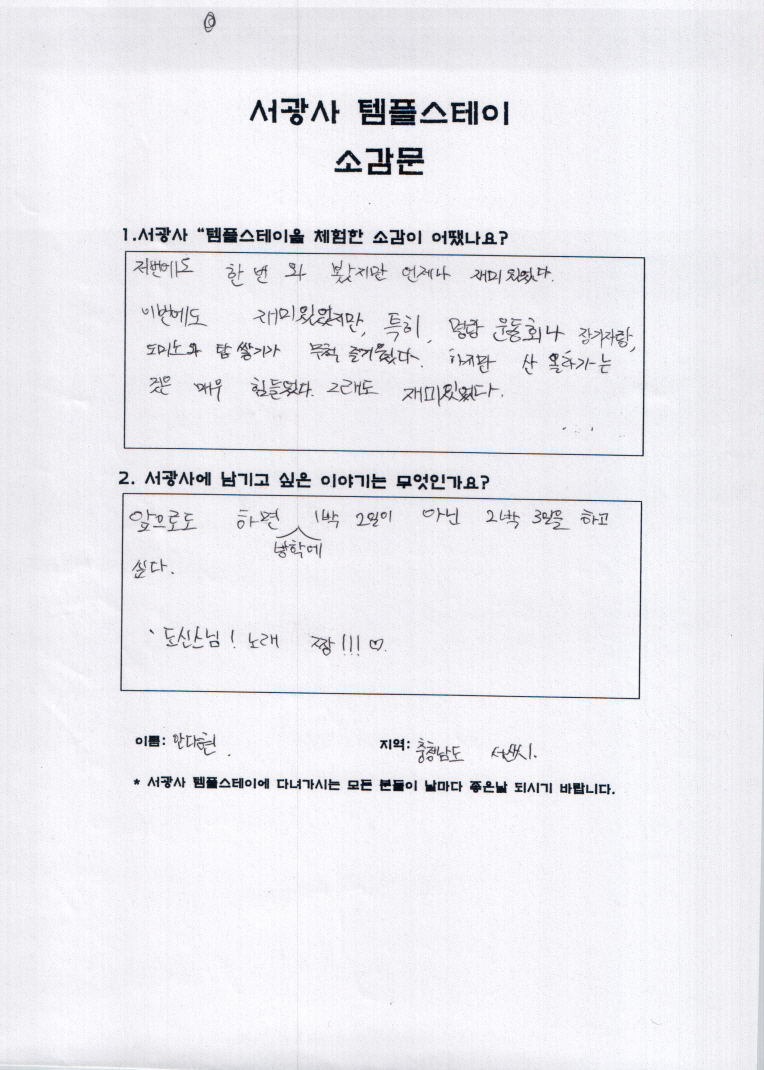 서광사 템플스테이
소감문
1.서광사 “템플스테이을 체험한 소감이 어땠나요?
저번에도 한 번 와 봤지만 언제나 재미있었다.
이번에도 재미있었지만, 특히, 명랑 운동회나 장기자랑,
도미노와 탑 쌓기가 무척 즐거웠다. 하지만 산 올라가는
것은 매우 힘들었다. 그래도 재미있었다.
2. 서광사에 남기고 싶은 이야기는 무엇인가요?
앞으로도 하면 1박 2일이 아닌 2박 3일을 하고
방학에
싶다.
도신스님! 노래 짱!!! ♡.
이름: 안다현. 지역: 충청남도 서산시.
* 서광사 템플스테이에 다녀가시는 모든 분들이 날마다 좋은날 되시기 바랍니다.